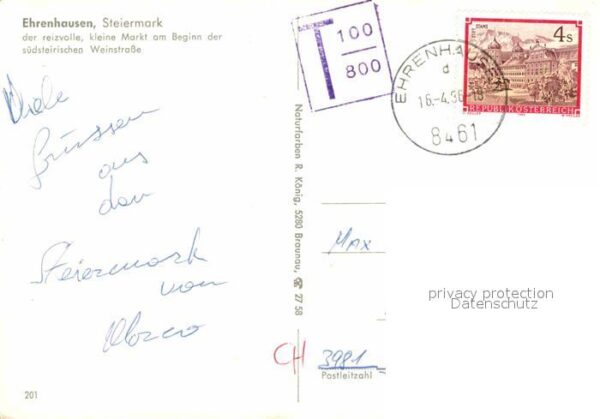 Ehrenhausen, Steiermark
der reizvolle, kleine Markt am Beginn der
südsteirischen Weinstraße
Viele
Grüssen
aus
dar
Steiermark
von
201
Naturfarben R. König, 5280 Braunau, ☎ 27 58
T 100
800
EHRENHAUSEN
d
16.-4.86-18
8461
STIFT STAMS
4 S
REPUBLIK ÖSTERREICH
Max
privacy protection
Datenschutz
CH 3981
Postleitzahl